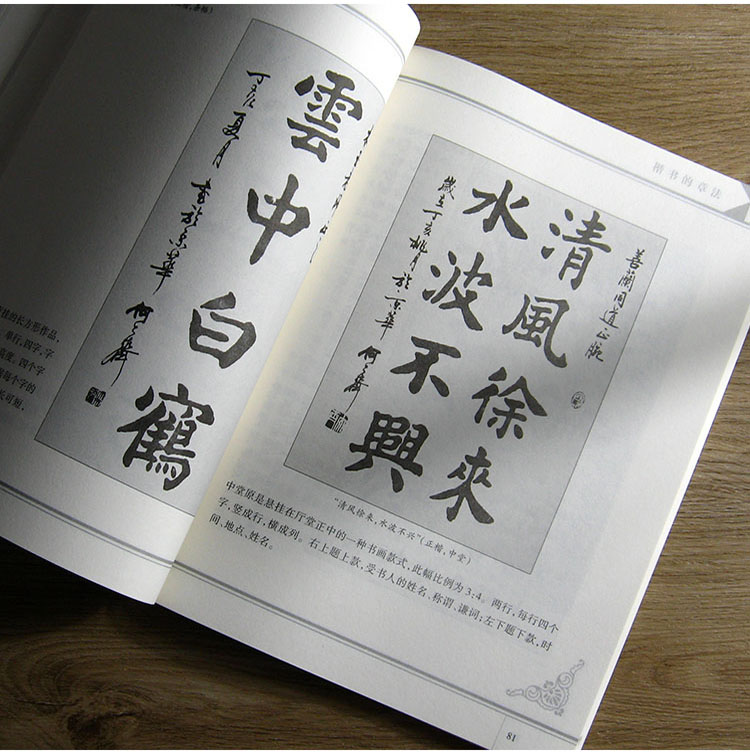 雲中白鶴
丁亥夏月書於京華
挂的长方形作品,
单行,四字,字
四个字
每个字的
长可短,
楷书的章法
善蘭同道正腕
清風徐來
水波不興
歲在丁亥桃月於京華
“清风徐来,水波不兴”(正楷,中堂)
中堂原是悬挂在厅堂正中的一种书画款式,此幅比例为3:4。两行,每行四个
字,竖成行,横成列。右上题上款,受书人的姓名、称谓、谦词;左下题下款,时
间、地点、姓名。
81